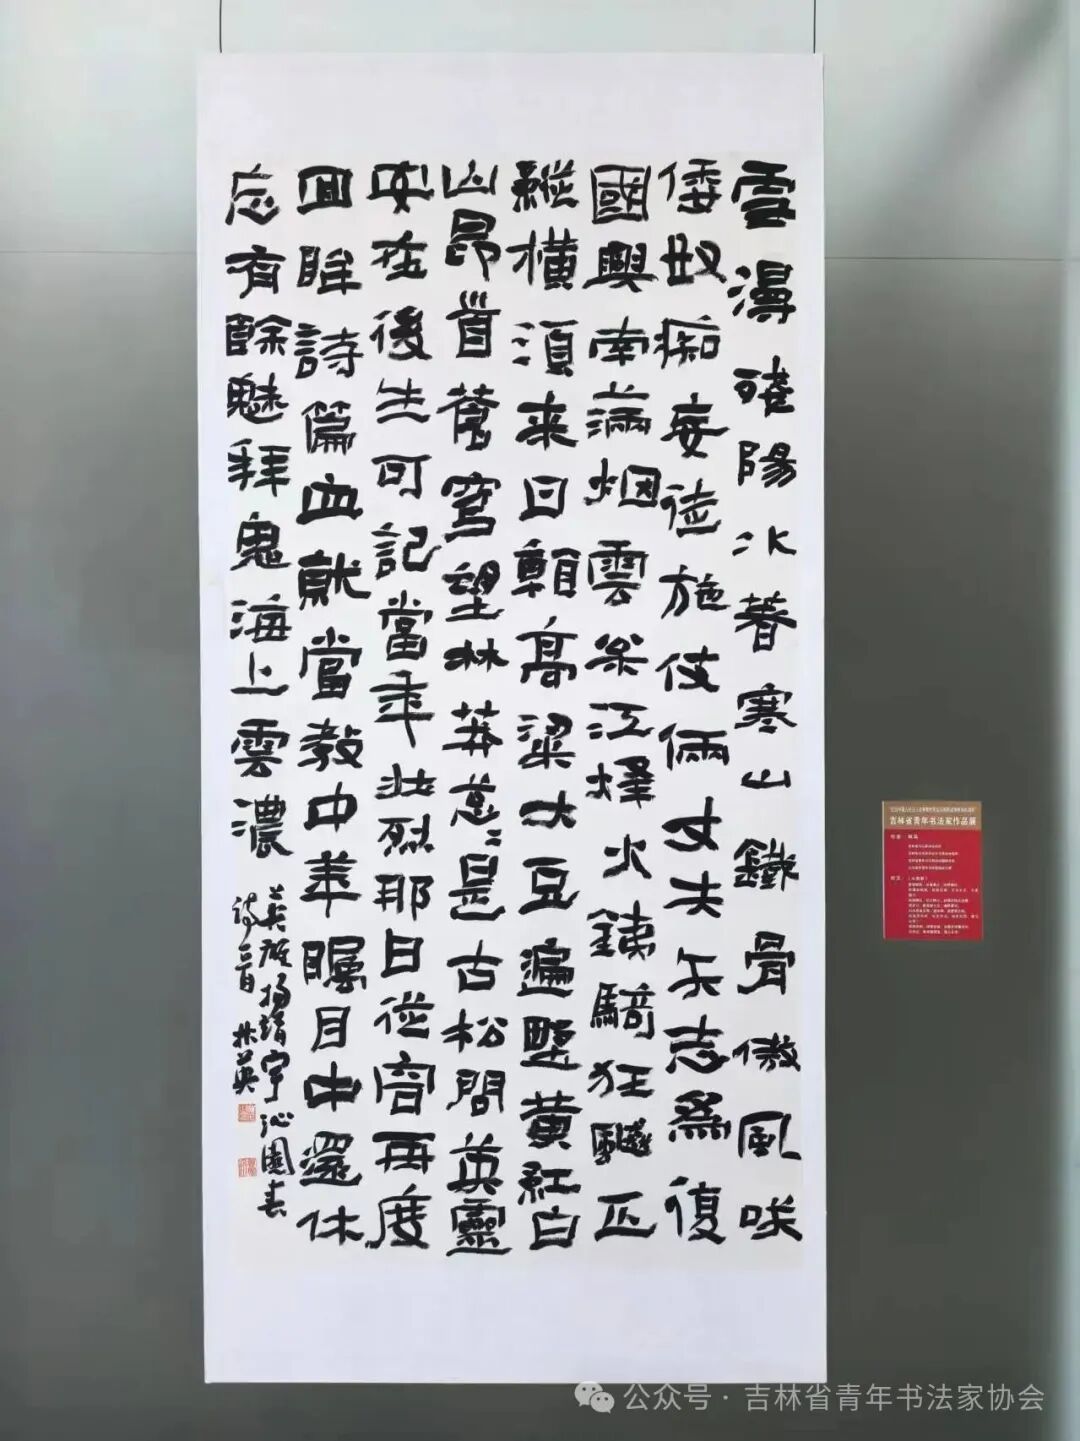 雲漫殘陽冰著寒山鐵骨傲風咲
倭奴痴妄徒施伎倆丈夫矢志為復
國興南滿烟雲松江烽火鐵騎狂飈正
縱橫須來日賴高粱大豆遍野黃紅白
山昂首蒼穹望林莽蒸〻是古松問英靈
安在後生可記當年壯烈那日從容再度
回眸詩篇血就當教中華矚目中還休
忘有餘魅拜鬼海上雲濃
英雄楊靖宇沁園春
詩一首 林英
吉林省青年书法家作品展
公众号·吉林省青年书法家协会